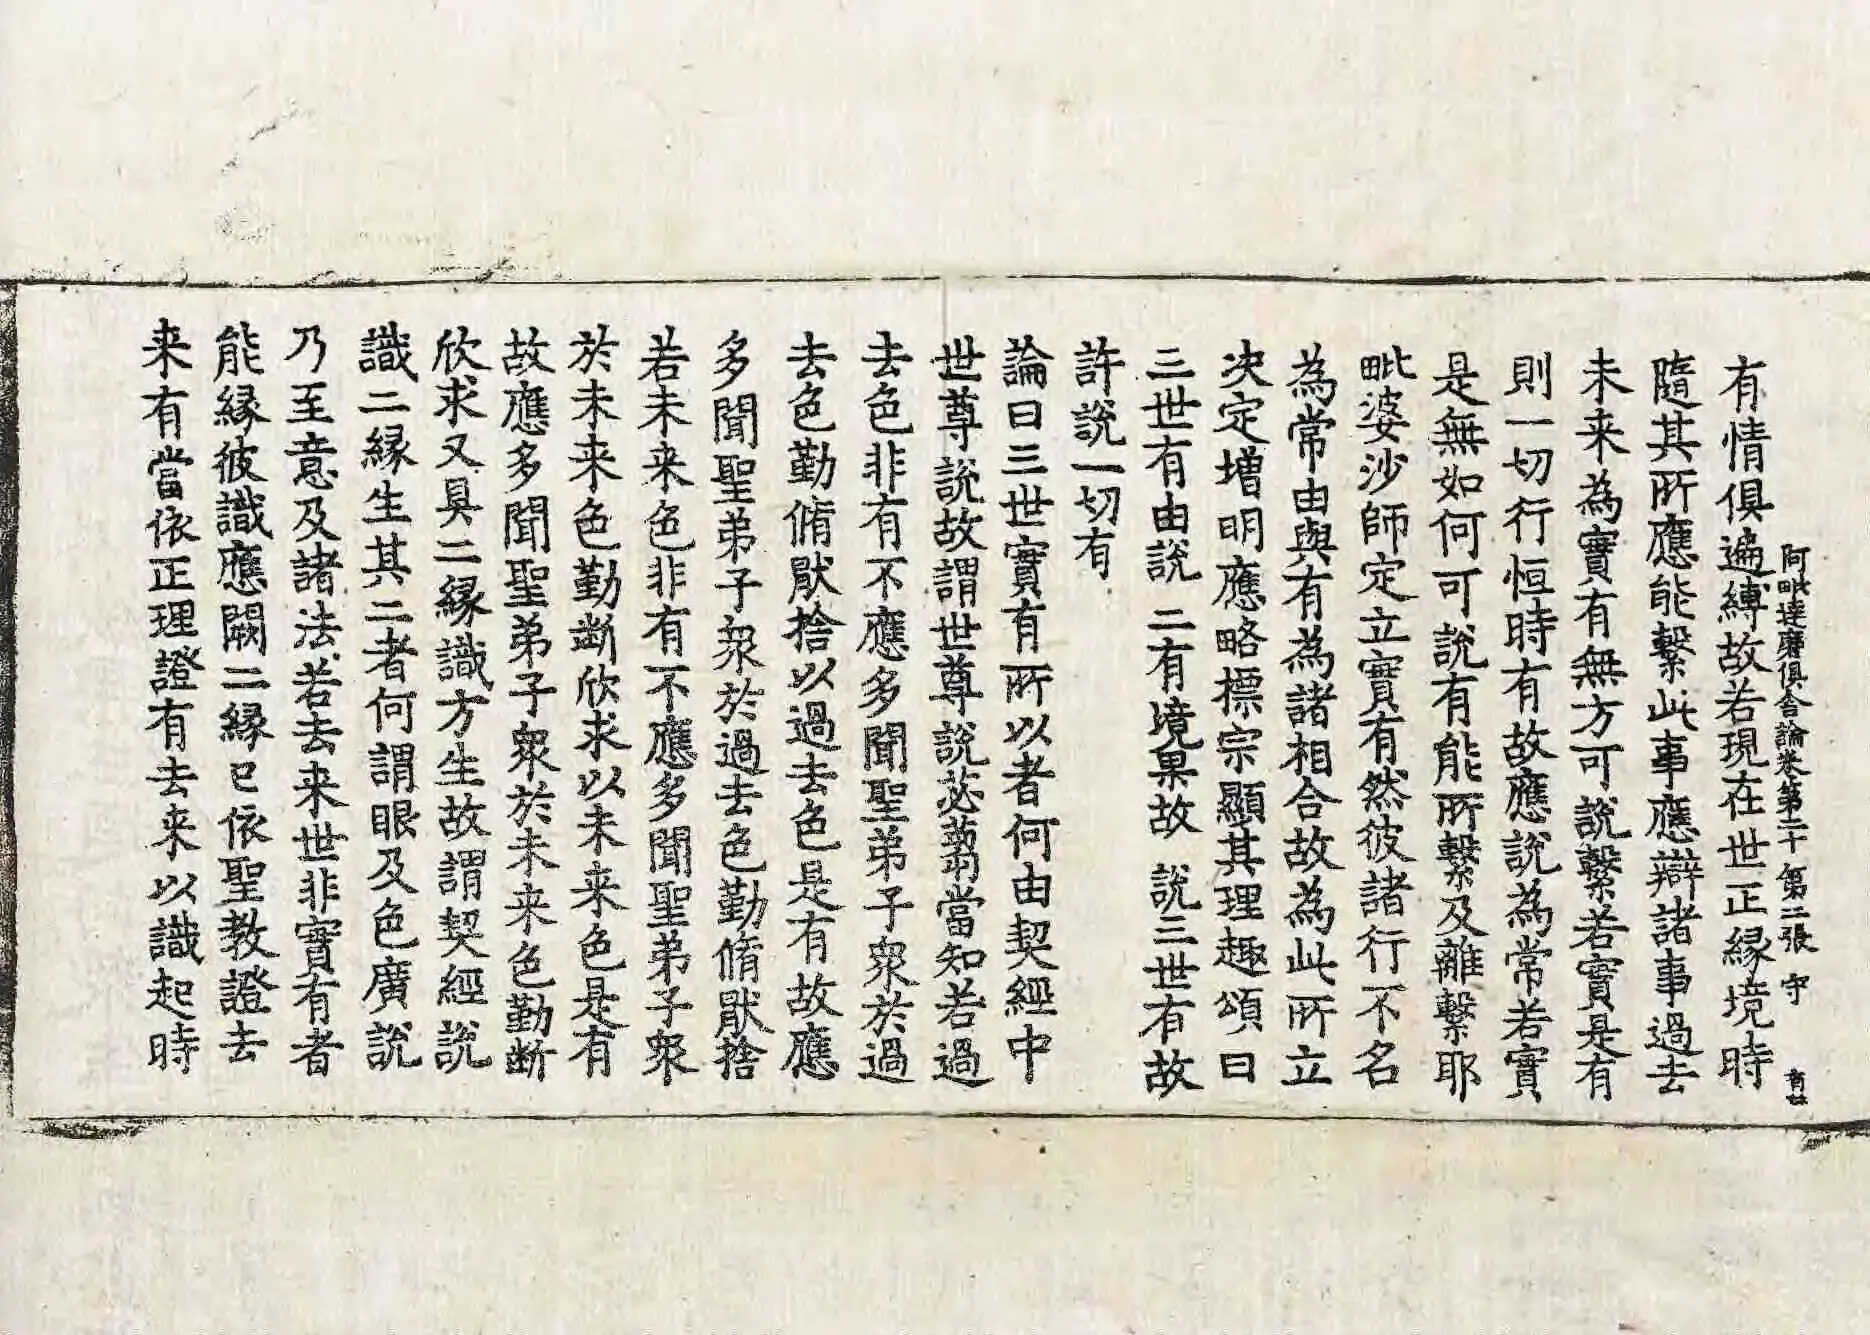 阿毗達磨俱舍論卷第二十 第二張 守 有廿
有情俱遍縛故若現在世正緣境時
隨其所應能繫此事應辯諸事過去
未来為實有無方可說繫若實是有
則一切行恒時有故應說為常若實
是無如何可說有能所繫及離繫耶
毗婆沙師定立實有然彼諸行不名
為常由與有為諸相合故為此所立
决定增明應略標宗顯其理趣頌曰
三世有由說 二有境果故 說三世有故
許說一切有
論曰三世實有所以者何由契經中
世尊說故謂世尊說苾蒭當知若過
去色非有不應多聞聖弟子衆於過
去色勤脩猒捨以過去色是有故應
多聞聖弟子衆於過去色勤脩猒捨
若未来色非有不應多聞聖弟子衆
於未来色勤斷欣求以未来色是有
故應多聞聖弟子衆於未来色勤斷
欣求又具二緣識方生故謂契經說
識二緣生其二者何謂眼及色廣說
乃至意及諸法若去来世非實有者
能緣彼識應闕二緣已依聖教證去
来有當依正理證有去来以識起時